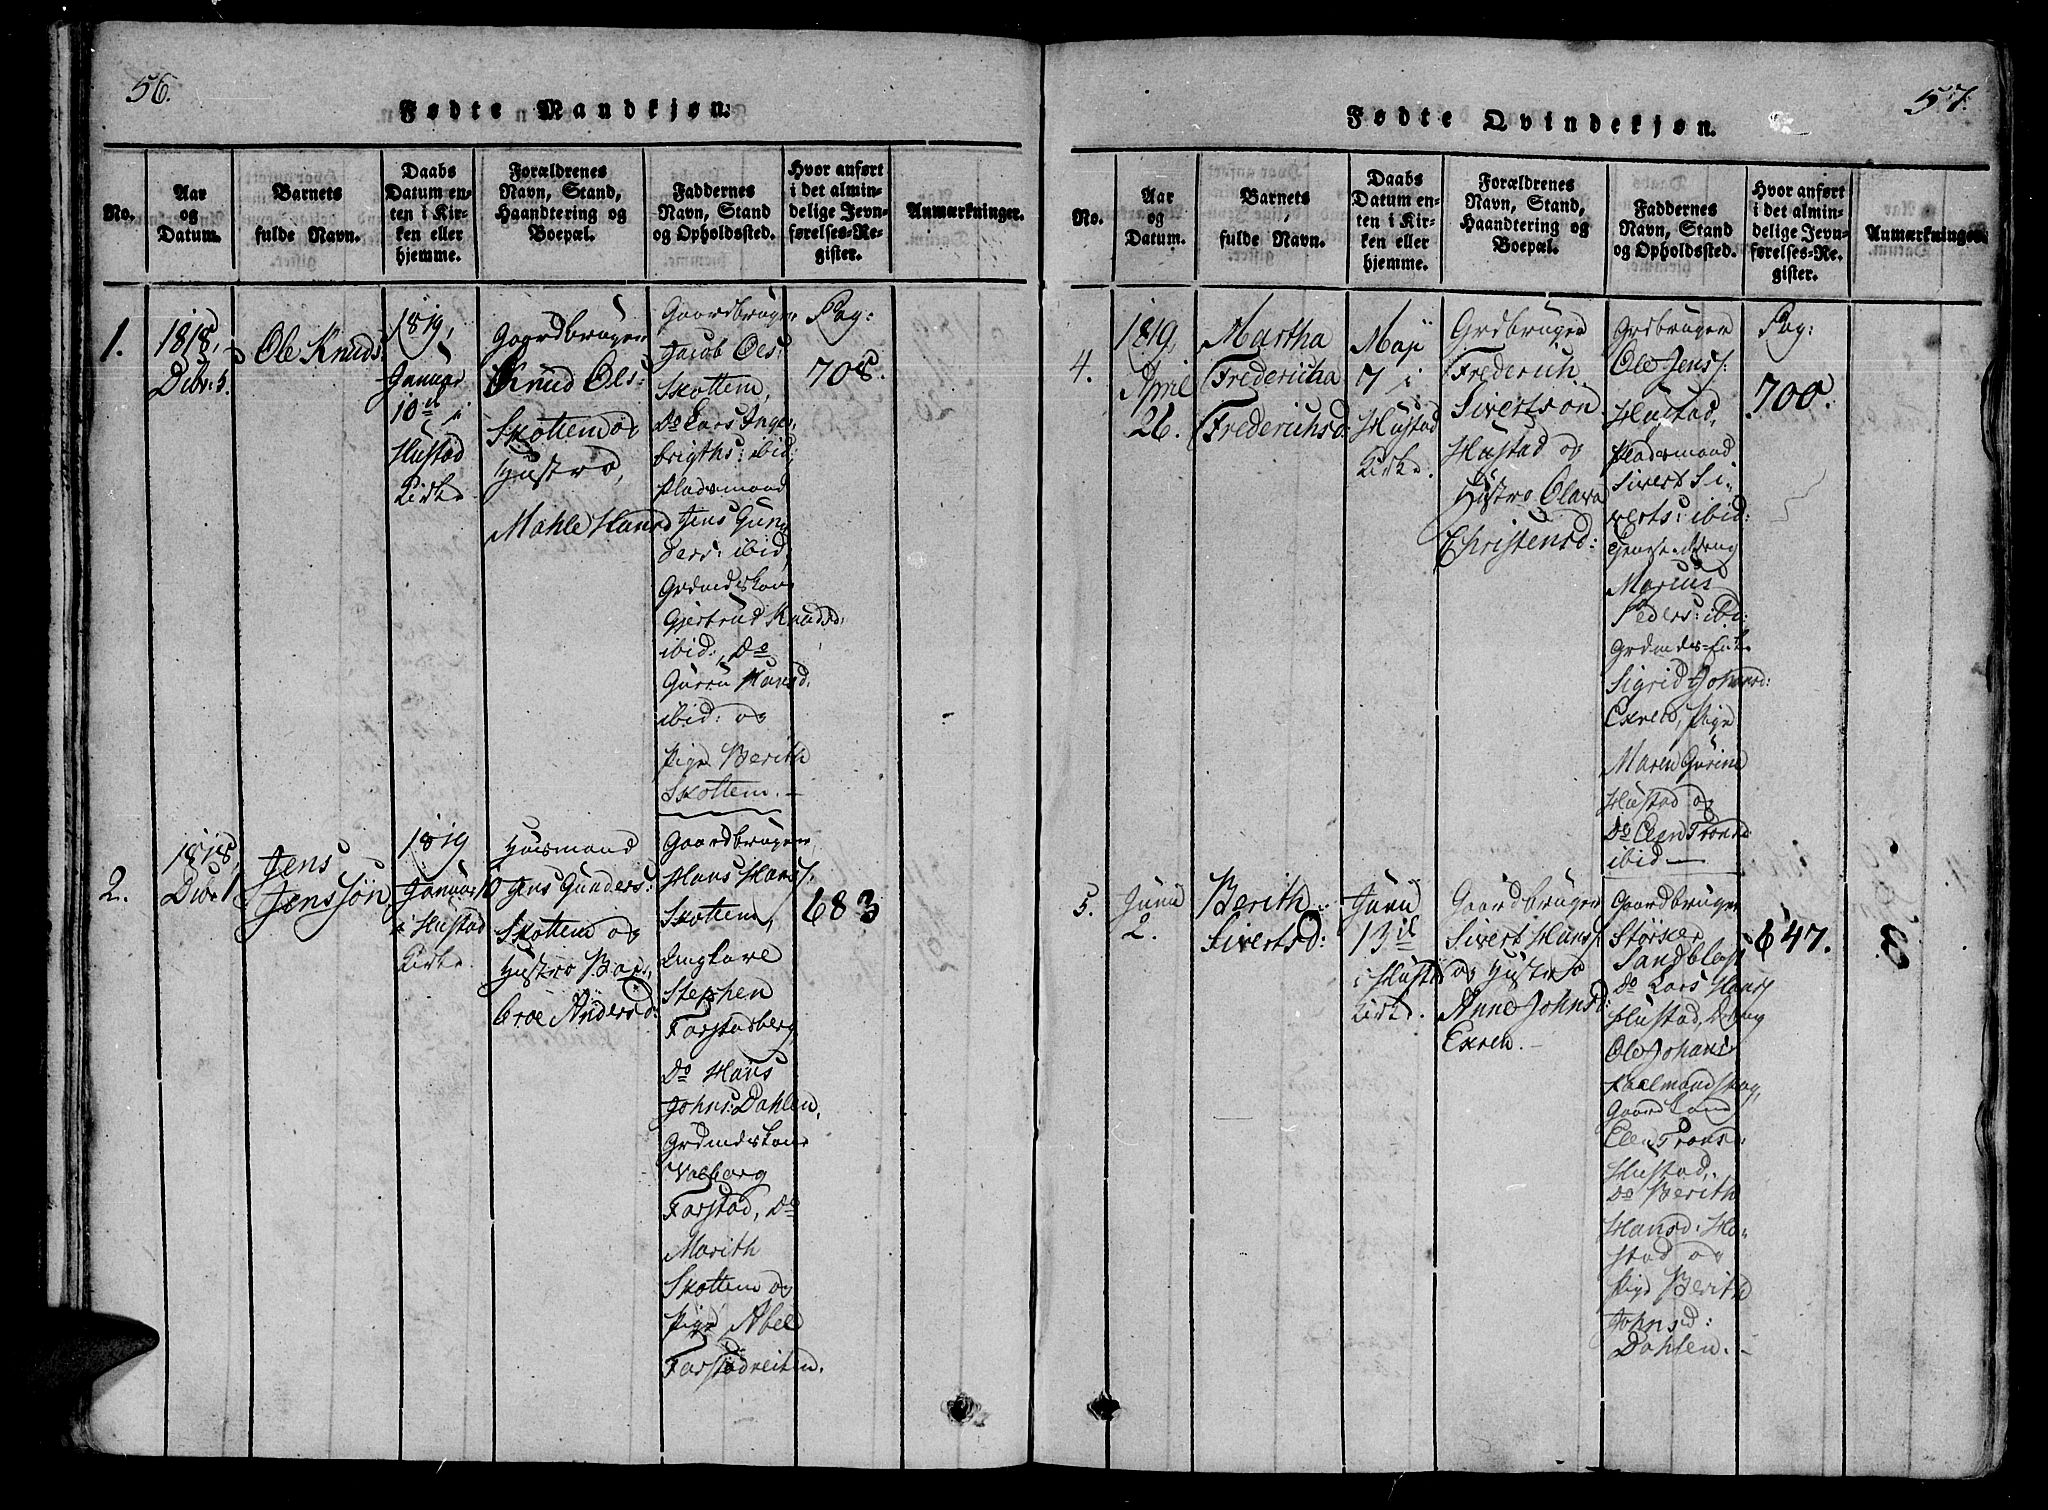 56.
Fødte Mandkjøn.
No.
Aar
og
Datum.
Barnets
fulde Navn.
Daabs
Datum en-
ten i Kir-
ken eller
hjemme.
Forældrenes
Navn, Stand,
Haandtering og
Boepæl.
Faddernes
Navn, Stand
og Opholdssted.
Hvor anført
i det almin-
delige Jevn-
førelses-Re-
gister.
Anmærkninger.
1.
1818,
Decbr: 5.
Ole Knuds:
1819,
Januar
10de i
Hustad
Kirke
Gaardbruger
Knud Ols:
Skottem og
Hustro,
Mahle Hansd
Gaardbruger
Jacob Ols:
Skottem,
Do Lars Inge-
brigths: ibid:
Pladsmand
Jens Gun-
ders: ibid,
Grdmdskone
Gjertrud Knudsd:
ibid:, Do
Guru Hansd:
ibid: og
Pige Berith
Skottem. —
Pag:
708
2.
1818,
Jens
Jenssøn
1819
Januar 10
i Hustad
Kirke
Huusmand
Jens Gunders:
Skottem og
Hustro
Andersd:
Gaardbruger
Hans Hans:
Skottem,
Ungkarl
Stephen
Farstadberg
Do Hans
Johns: Dahlen,
Grdmdskone
Valborg
Farstad, Do
Marith
Skottem og
Pige Abel
Farstadreiten.
683
57.
Fødte Qvindekjøn.
No.
Aar
og
Datum.
Barnets
fulde Navn.
Daabs
Datum en-
ten i Kir-
ken eller
hjemme.
Forældrenes
Navn, Stand,
Haandtering og
Boepæl.
Faddernes
Navn, Stand
og Opholdssted.
Hvor anført
i det almin-
delige Jevn-
førelses-Re-
gister.
Anmærkninger.
4.
1819,
April
26.
Martha
Fredericha
Frederichsd:
Maji
7 i
Hustad
Kirke.
Grdbruger
Frederich
Sivertson
Hustad og
Hustro Olava
Christensd:
Grdbruger
Ole Jens:
Hustad,
Pladsmand
Sivert Si-
verts: ibid:
Marcus
Peders: ibid:
Sigrid Johansd:
Exren, Pige
Maren Gurine
Hustad og
Do Elen Tronsd
ibid —
Pag:
700.
5.
Junii
2.
Berith
Sivertsd:
Junii
13de
i Hustad
Kirke.
Gaardbruger
Sivert Hans:
og Hustro
Anne Johnsd:
Exren. —
Gaardbruger
Størker
Sandblast
Do Lars Hans:
Hustad, Dreng
Ole Johans:
Gaardkone
Elen Tronsd:
Hustad,
Do Berith
Hansd: Hu-
stad og
Pige Berith
Johnsd:
Dahlen. —
647.